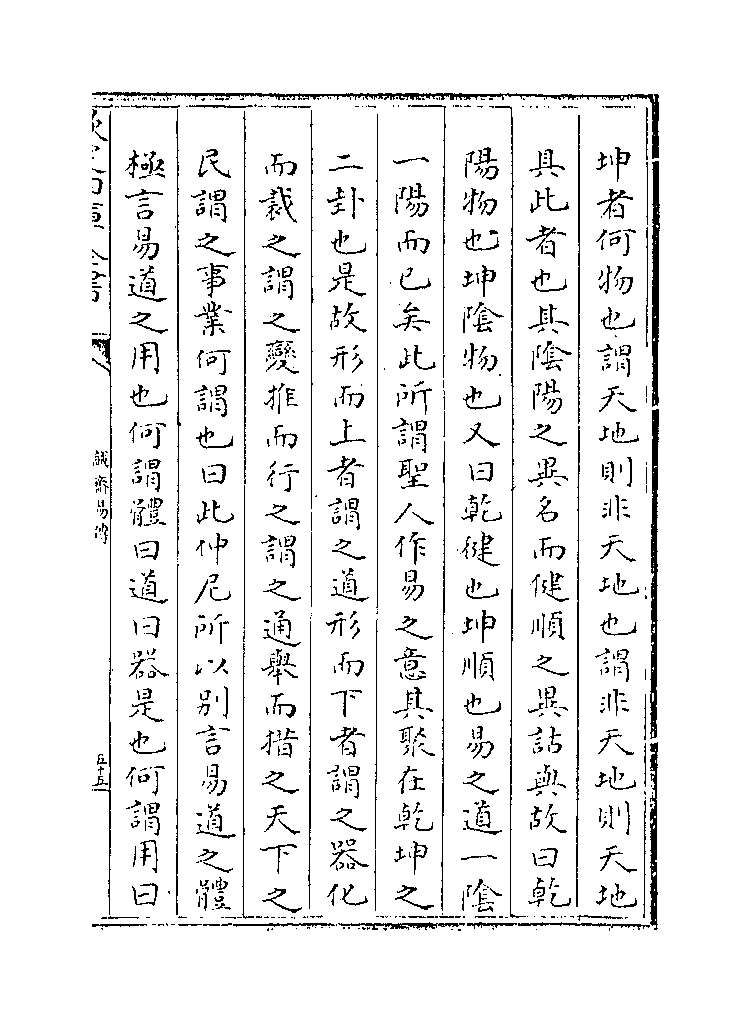 坤者何物也謂天地則非天地也謂非天地則天地
具此者也其陰陽之異名而健順之異詁與故曰乾
陽物也坤陰物也又曰乾健也坤順也易之道一陰
一陽而已矣此所謂聖人作易之意其聚在乾坤之
二卦也是故形而上者謂之道形而下者謂之器化
而裁之謂之變推而行之謂之通舉而措之天下之
民謂之事業何謂也曰此仲尼所以別言易道之體
極言易道之用也何謂體曰道曰器是也何謂用曰
誠齋易傳
五十五